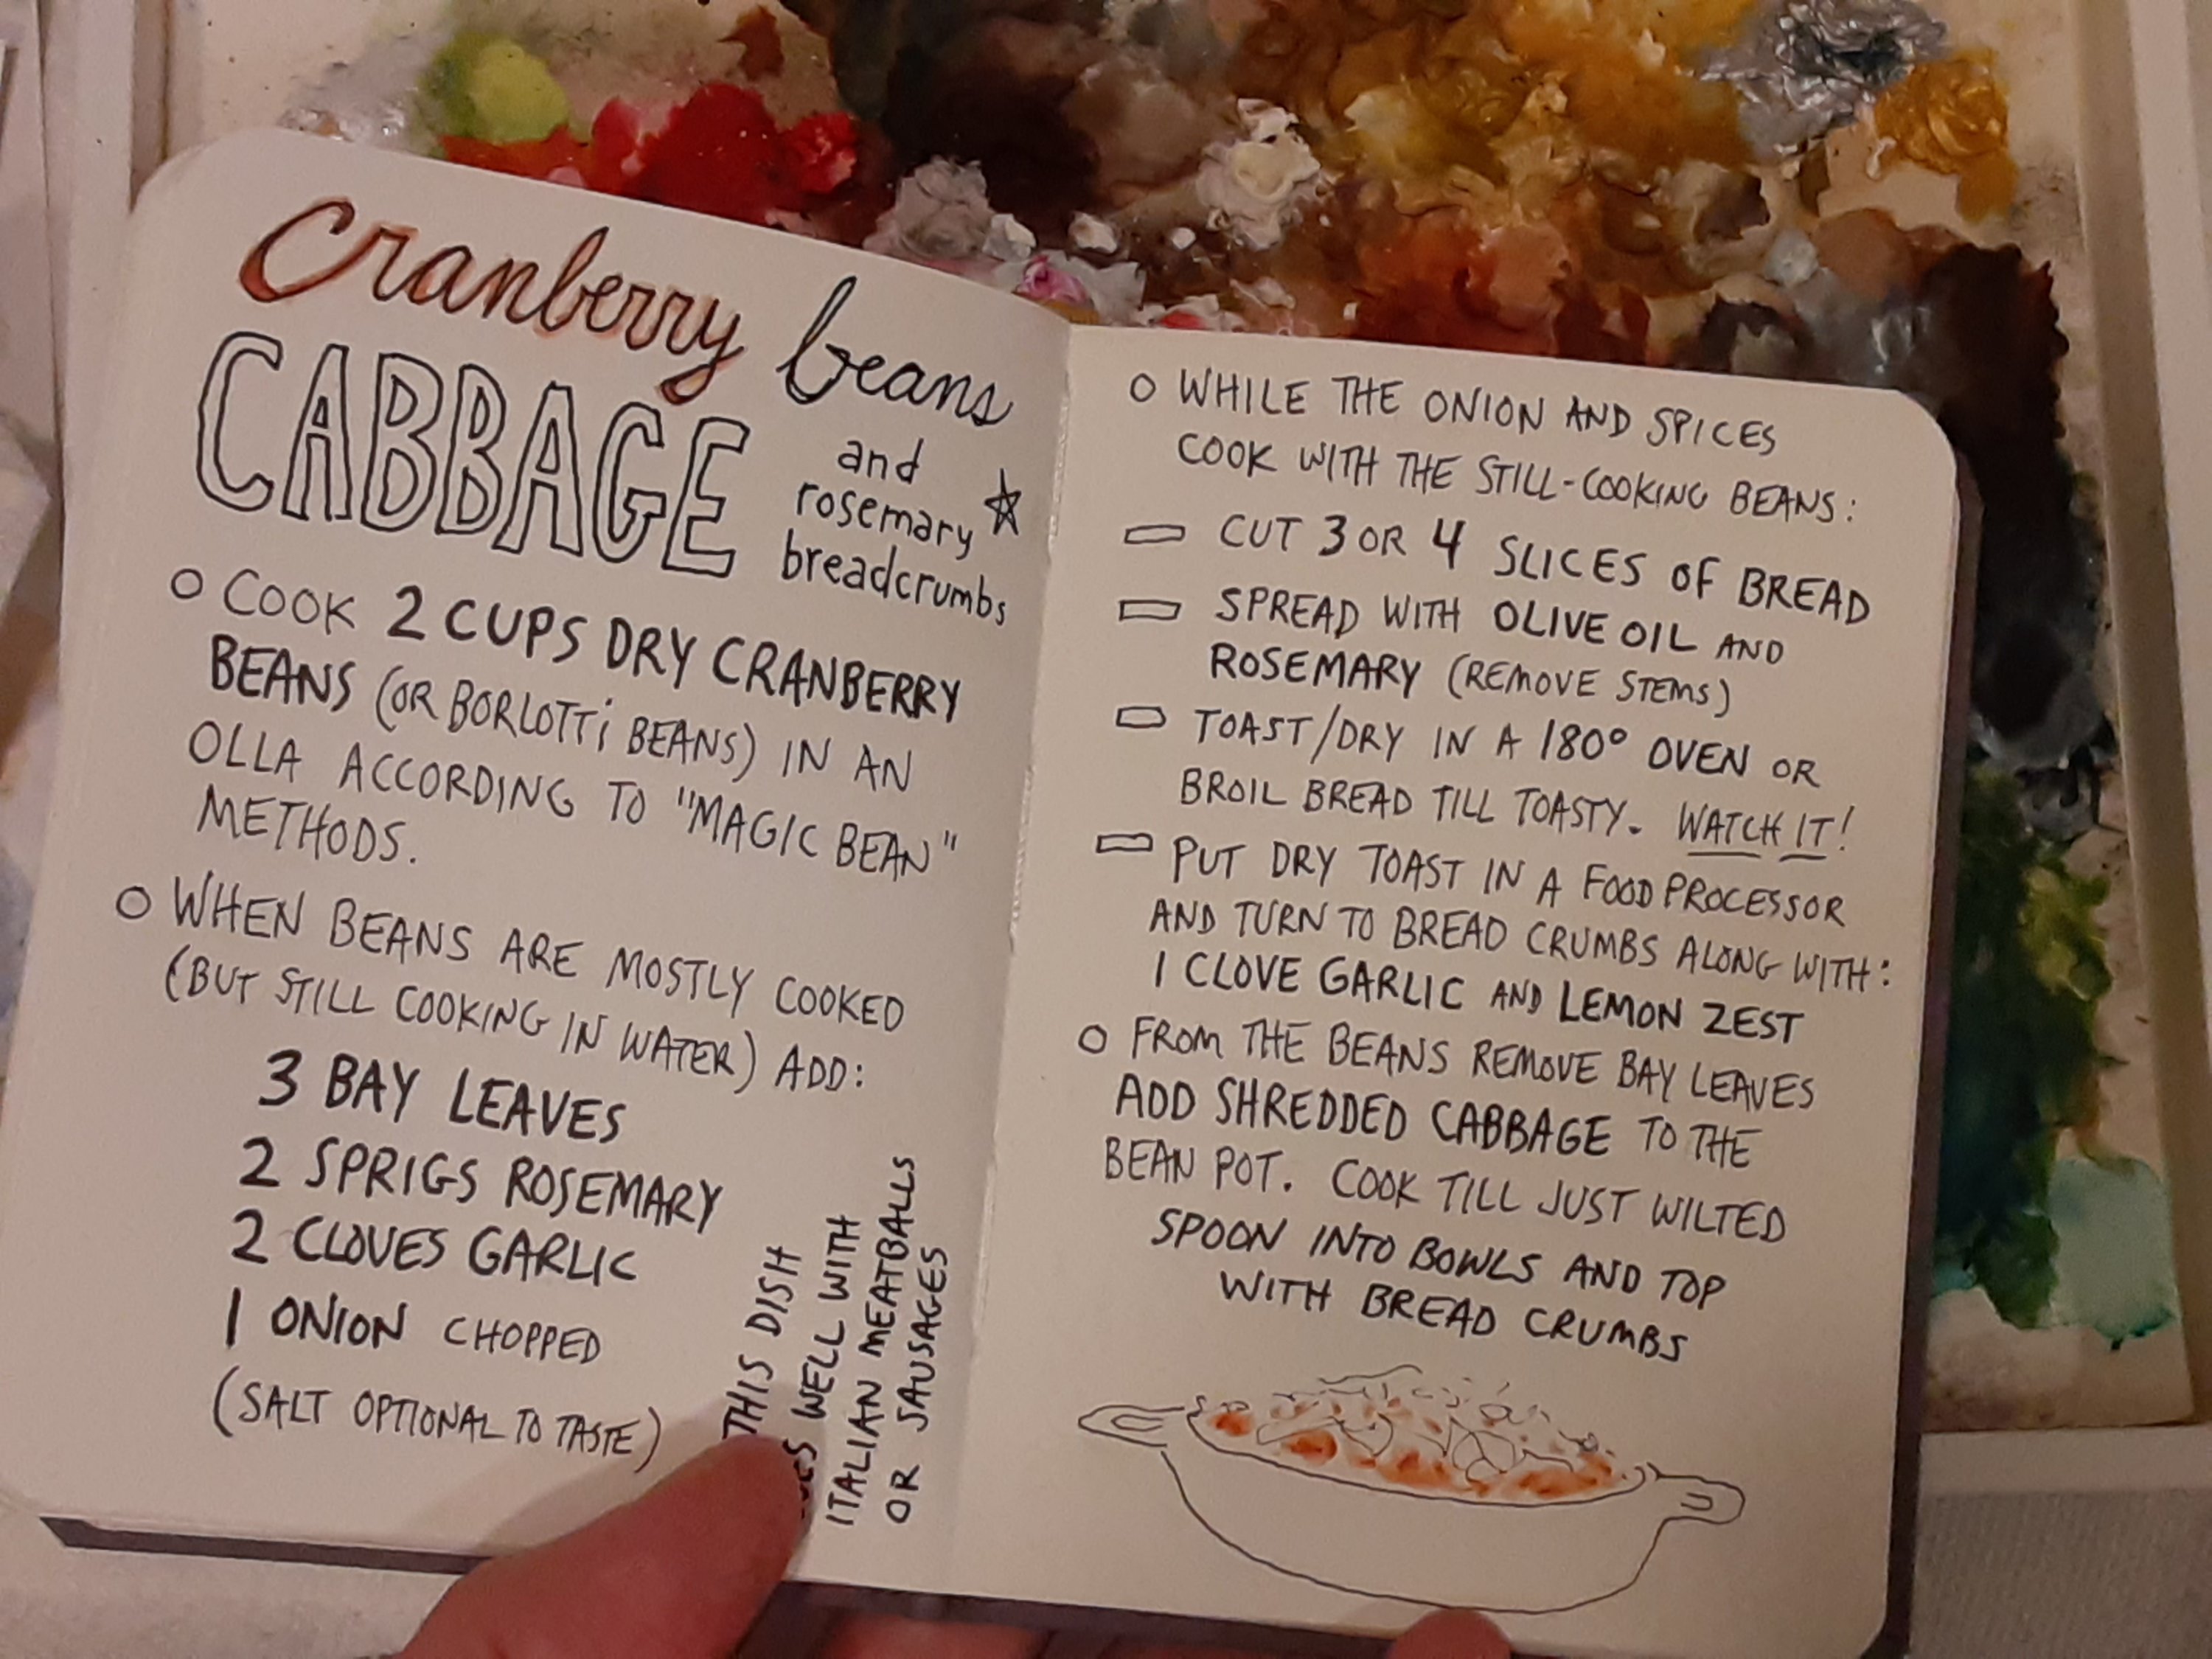 cranberry beans
CABBAGE
and
rosemary
breadcrumbs
○ COOK 2 CUPS DRY CRANBERRY
BEANS (OR BORLOTTi BEANS) IN AN
OLLA ACCORDING TO "MAGIC BEAN"
METHODS.
○ WHEN BEANS ARE MOSTLY COOKED
(BUT STILL COOKING IN WATER) ADD:
3 BAY LEAVES
2 SPRIGS ROSEMARY
2 CLOVES GARLIC
1 ONION CHOPPED
(SALT OPTIONAL TO TASTE)
THIS DISH
WELL WITH
ITALIAN MEATBALLS
OR SAUSAGES
○ WHILE THE ONION AND SPICES
COOK WITH THE STILL-COOKING BEANS:
▭ CUT 3 OR 4 SLICES OF BREAD
▭ SPREAD WITH OLIVE OIL AND
ROSEMARY (REMOVE STEMS)
▭ TOAST/DRY IN A 180° OVEN OR
BROIL BREAD TILL TOASTY. WATCH IT!
▭ PUT DRY TOAST IN A FOOD PROCESSOR
AND TURN TO BREAD CRUMBS ALONG WITH:
1 CLOVE GARLIC AND LEMON ZEST
○ FROM THE BEANS REMOVE BAY LEAVES
ADD SHREDDED CABBAGE TO THE
BEAN POT. COOK TILL JUST WILTED
SPOON INTO BOWLS AND TOP
WITH BREAD CRUMBS